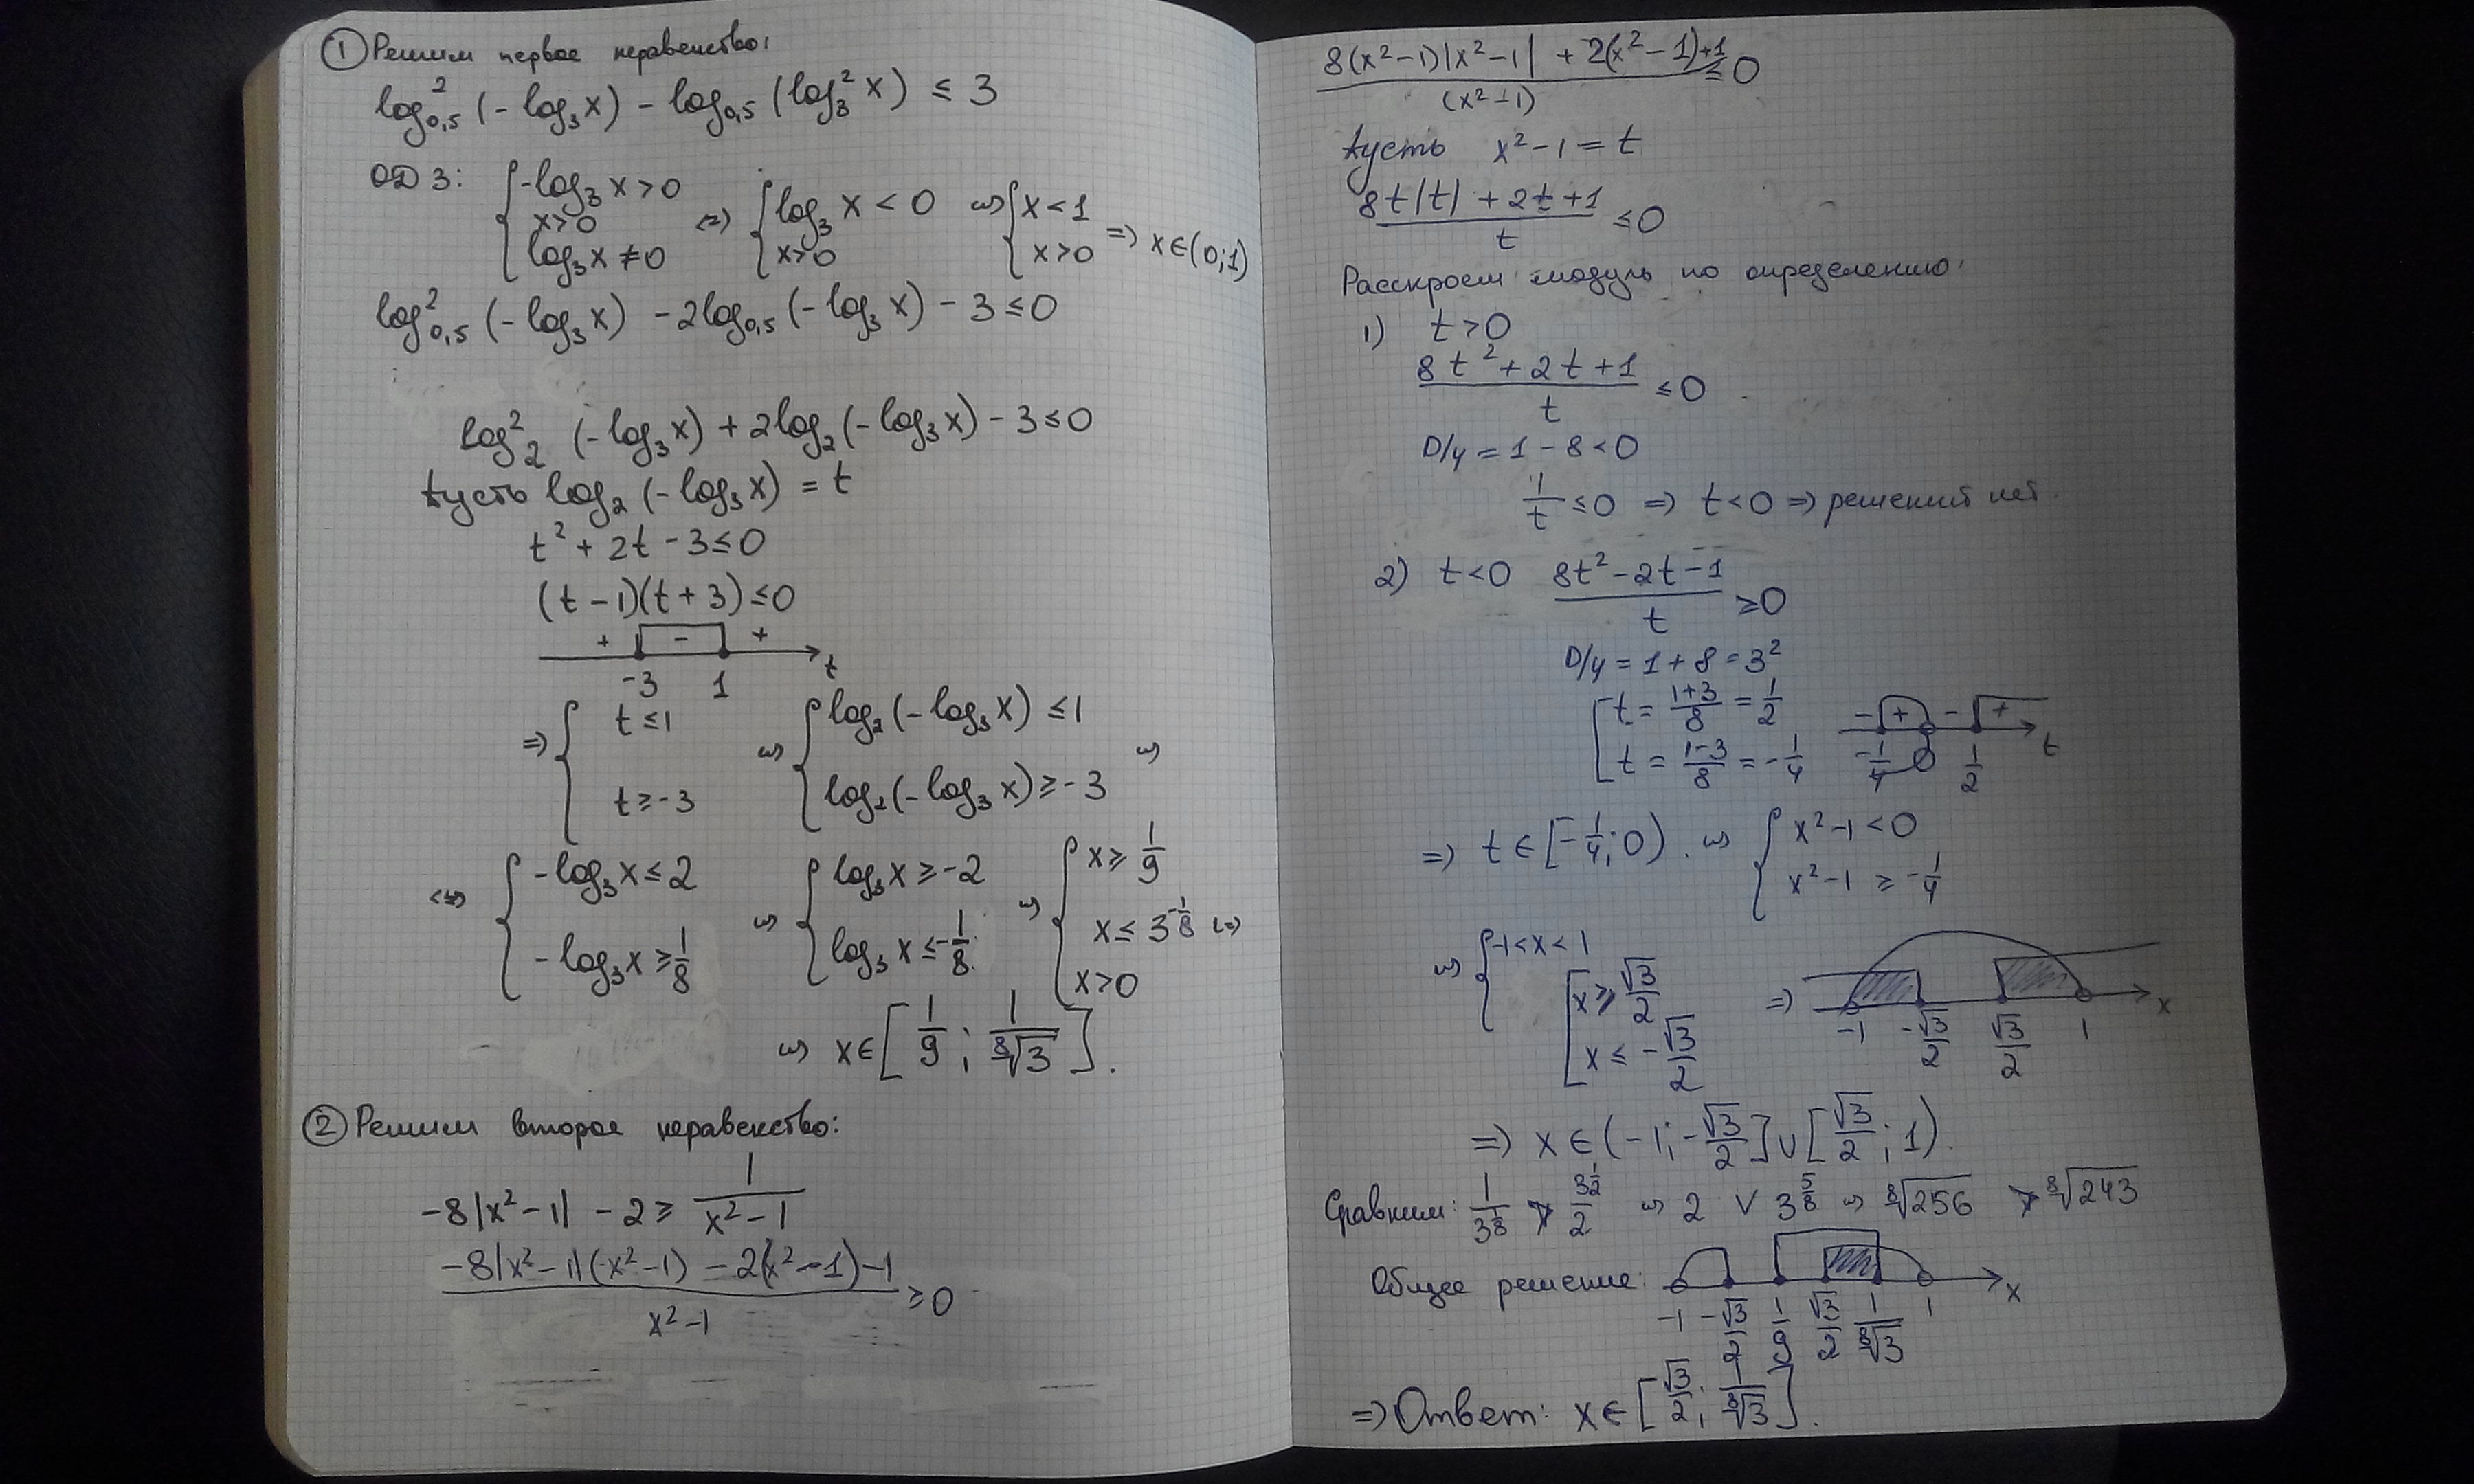 ① Решим первое неравенство:
log²₀,₅ (-log₃x) - log₀,₅ (log₃²x) ≤ 3
ОДЗ: { -log₃x > 0; x>0; log₃x ≠ 0 <=> { log₃x < 0; x>0 <=> { x < 1; x > 0 => x∈(0;1)
log²₀,₅ (-log₃x) - 2log₀,₅ (-log₃x) - 3 ≤ 0
log²₂ (-log₃x) + 2log₂(-log₃x) - 3 ≤ 0
пусть log₂(-log₃x) = t
t² + 2t - 3 ≤ 0
(t - 1)(t + 3) ≤ 0
+ - +
-3 1 t
=> { t ≤ 1; t ≥ -3 <=> { log₂(-log₃x) ≤ 1; log₂(-log₃x) ≥ -3 <=>
<=> { -log₃x ≤ 2; -log₃x ≥ 1/8 <=> { log₃x ≥ -2; log₃x ≤ -1/8 <=> { x ≥ 1/9; x ≤ 3^(-1/8); x>0 <=>
<=> x∈[1/9; 1/⁸√3].
② Решим второе неравенство:
-8|x²-1| - 2 ≥ 1/(x²-1)
(-8|x²-1|(x²-1) - 2(x²-1) - 1)/(x²-1) ≥ 0
(8(x²-1)|x²-1| + 2(x²-1)+1)/(x²-1) ≤ 0
пусть x²-1 = t
(8t|t| + 2t + 1)/t ≤ 0
Расскроем модуль по определению:
1) t > 0
(8t² + 2t + 1)/t ≤ 0
D/4 = 1 - 8 < 0
1/t ≤ 0 => t < 0 => решений нет
2) t < 0 (8t² - 2t - 1)/t ≥ 0
D/4 = 1 + 8 = 3²
[ t = (1+3)/8 = 1/2; t = (1-3)/8 = -1/4
- + - +
-1/4 0 1/2 t
=> t∈[-1/4; 0). <=> { x²-1 < 0; x²-1 ≥ -1/4
<=> { -1<x<1; [ x ≥ √3/2; x ≤ -√3/2 =>
-1 -√3/2 √3/2 1 x
=> x∈(-1; -√3/2]∪[√3/2; 1).
Сравним: 1/3^(1/8) > 3^(1/2)/2 <=> 2 ∨ 3^(5/8) <=> ⁸√256 > ⁸√243
Общее решение:
-1 -√3/2 1/9 √3/2 1/⁸√3 1 x
=> Ответ: x∈[√3/2; 1/⁸√3].